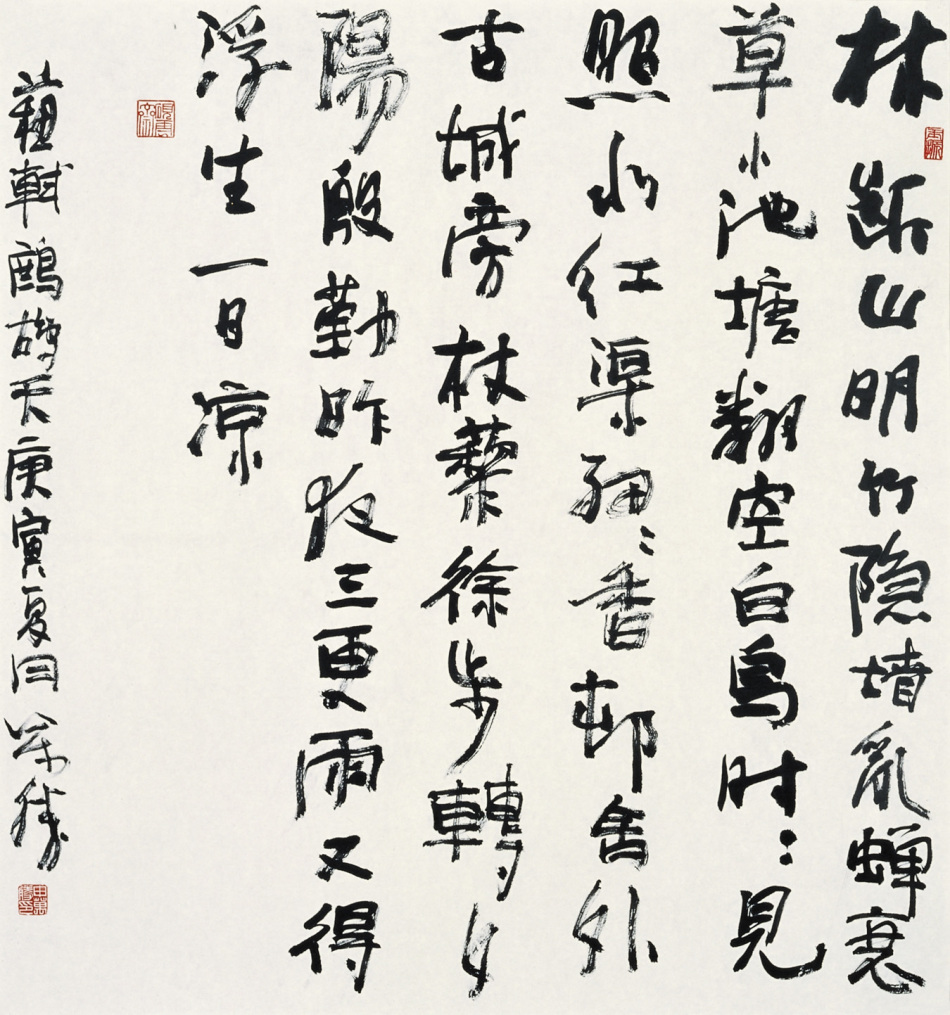 林断山明竹隐墙亂蝉衰
草小池塘翻空白鳥时:見
照水红渠細:香邨舍外
古城旁杖藜徐步轉夕
陽殷勤昨夜三更雨又得
浮生一日凉
蘇軾鷓鴣天庚寅夏